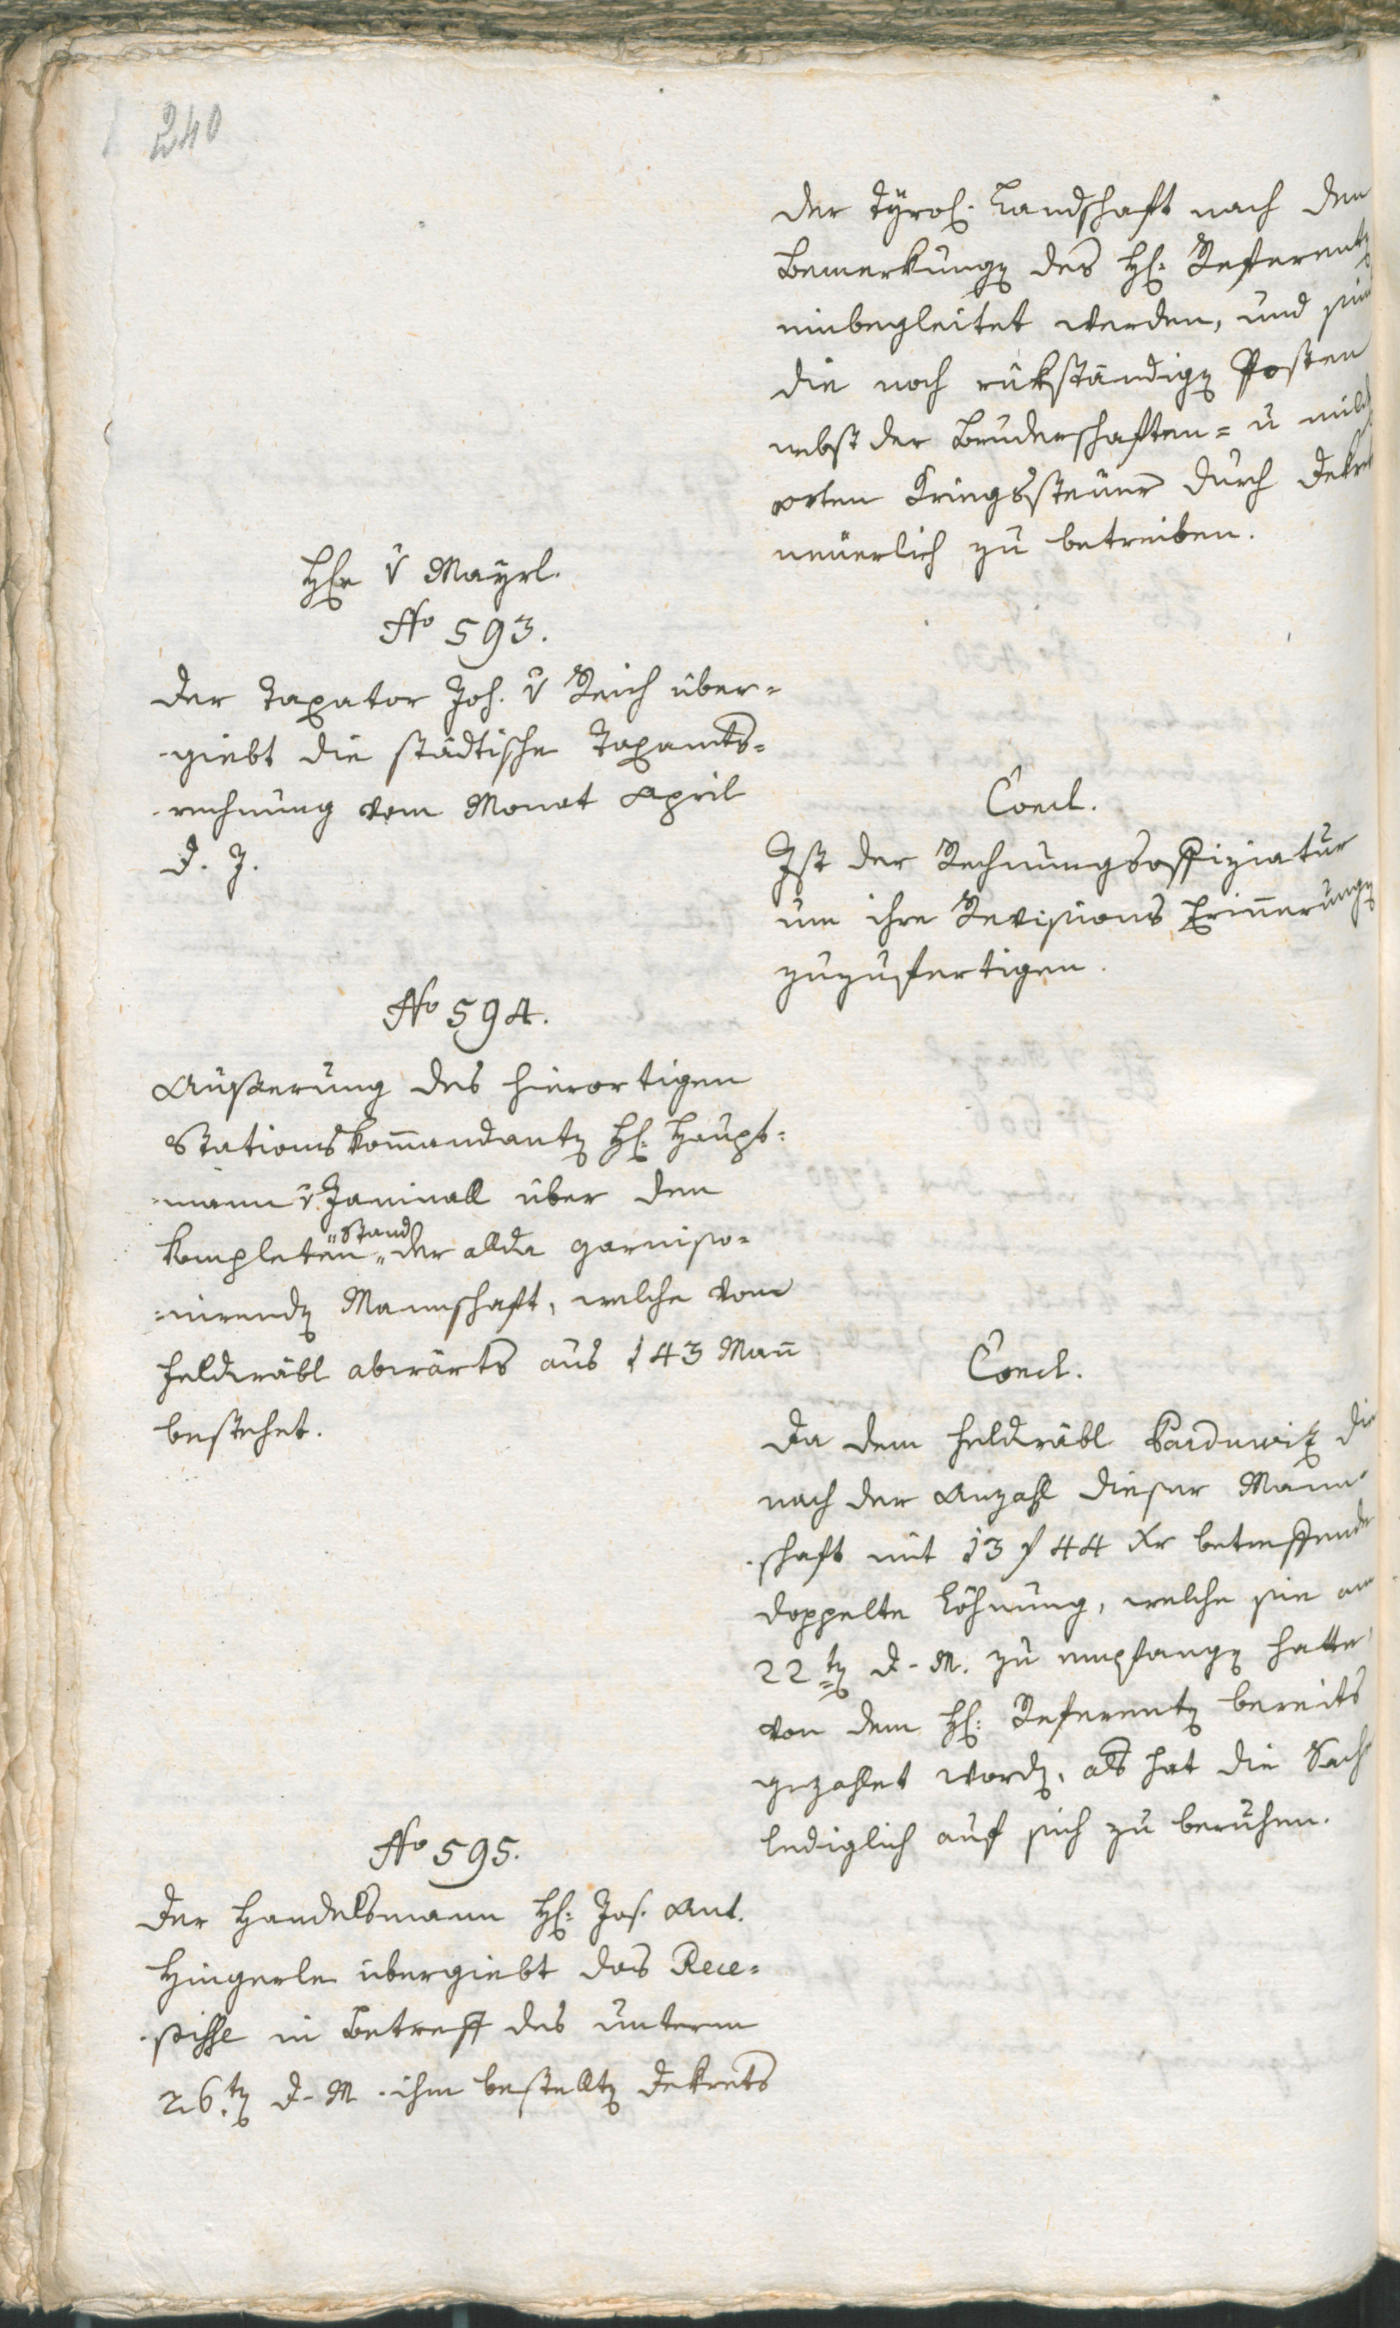 240
der Tÿrol. Landschaft nach den
Bemerkungen des H: Referenten
einbegleitet werden, und sind
die noch rükständigen Posten
nebst der Bruderschaften= u mild
orten Kriegssteuer durch Dekret
neüerlich zu betreiben.
Hr v Mayrl.
No 593.
Der Taxator Joh. v Reich über=
giebt die städtische Taxamts=
rechnung vom Monat April
d. J.
Concl.
Ist der Rechnungsoffiziatur
um ihre Revisions Erinnerungen
zuzufertigen.
No 594.
Äußerung des hierortigen
Stationskommandanten H: Haupt=
mann v Janinall über den
kompleten Stand der allda garniso=
nirenden Mannschaft, welche vom
Feldwäbl abwärts aus 143 Mann
bestehet.
Concl.
Da dem Feldwäbl Parduwitz die
nach der Anzahl dieser Mann=
schaft mit 13 f 44 xr betreffende
doppelte Löhnung, welche sie am
22ten d. M. zu empfangen hatte,
von dem H: Referenten bereits
gezahlet worden, als hat die Sache
lediglich auf sich zu beruhen.
No 595.
Der Handelsmann H: Jos. Ant.
Hingerle übergiebt das Rece=
pisse in Betreff des unterm
26ten d. M. ihm bestellten Dekrets